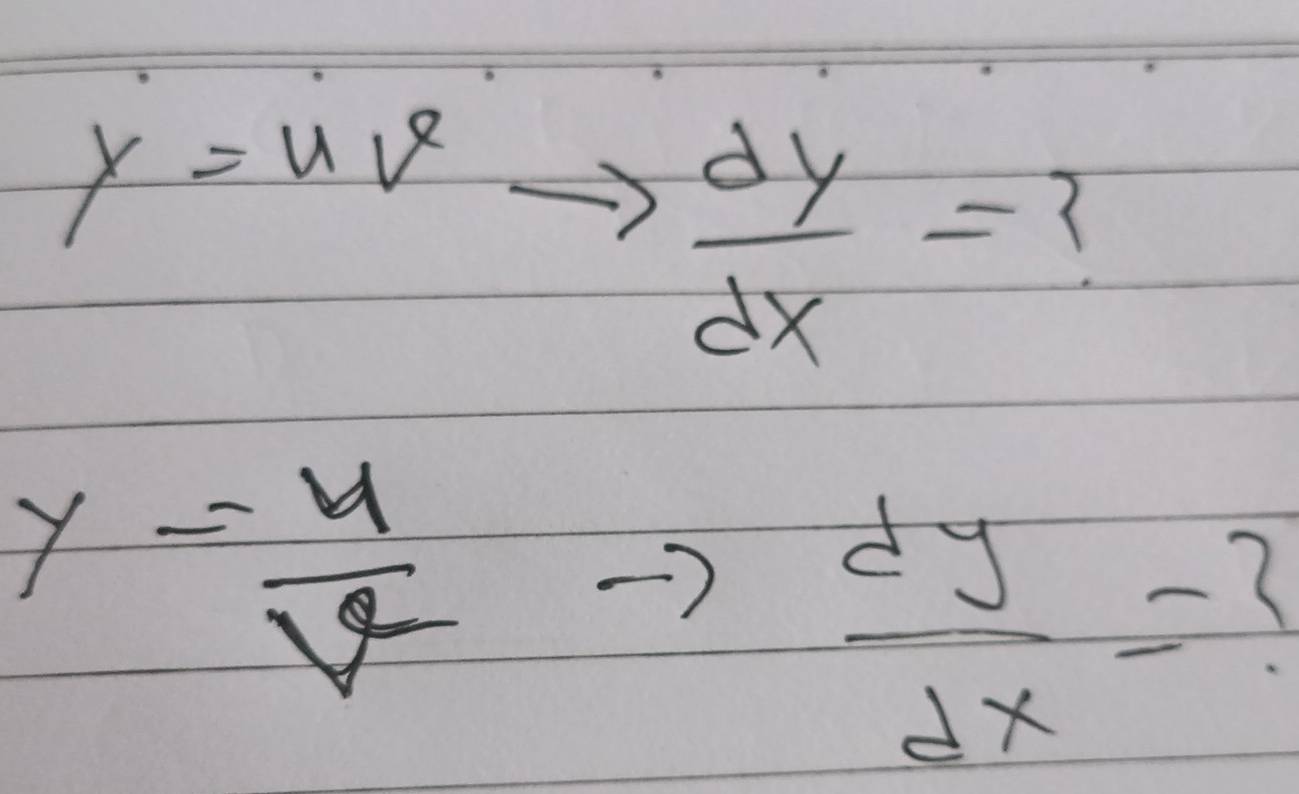 y = uv → dy/dx = ?
y = u/v → dy/dx = ?